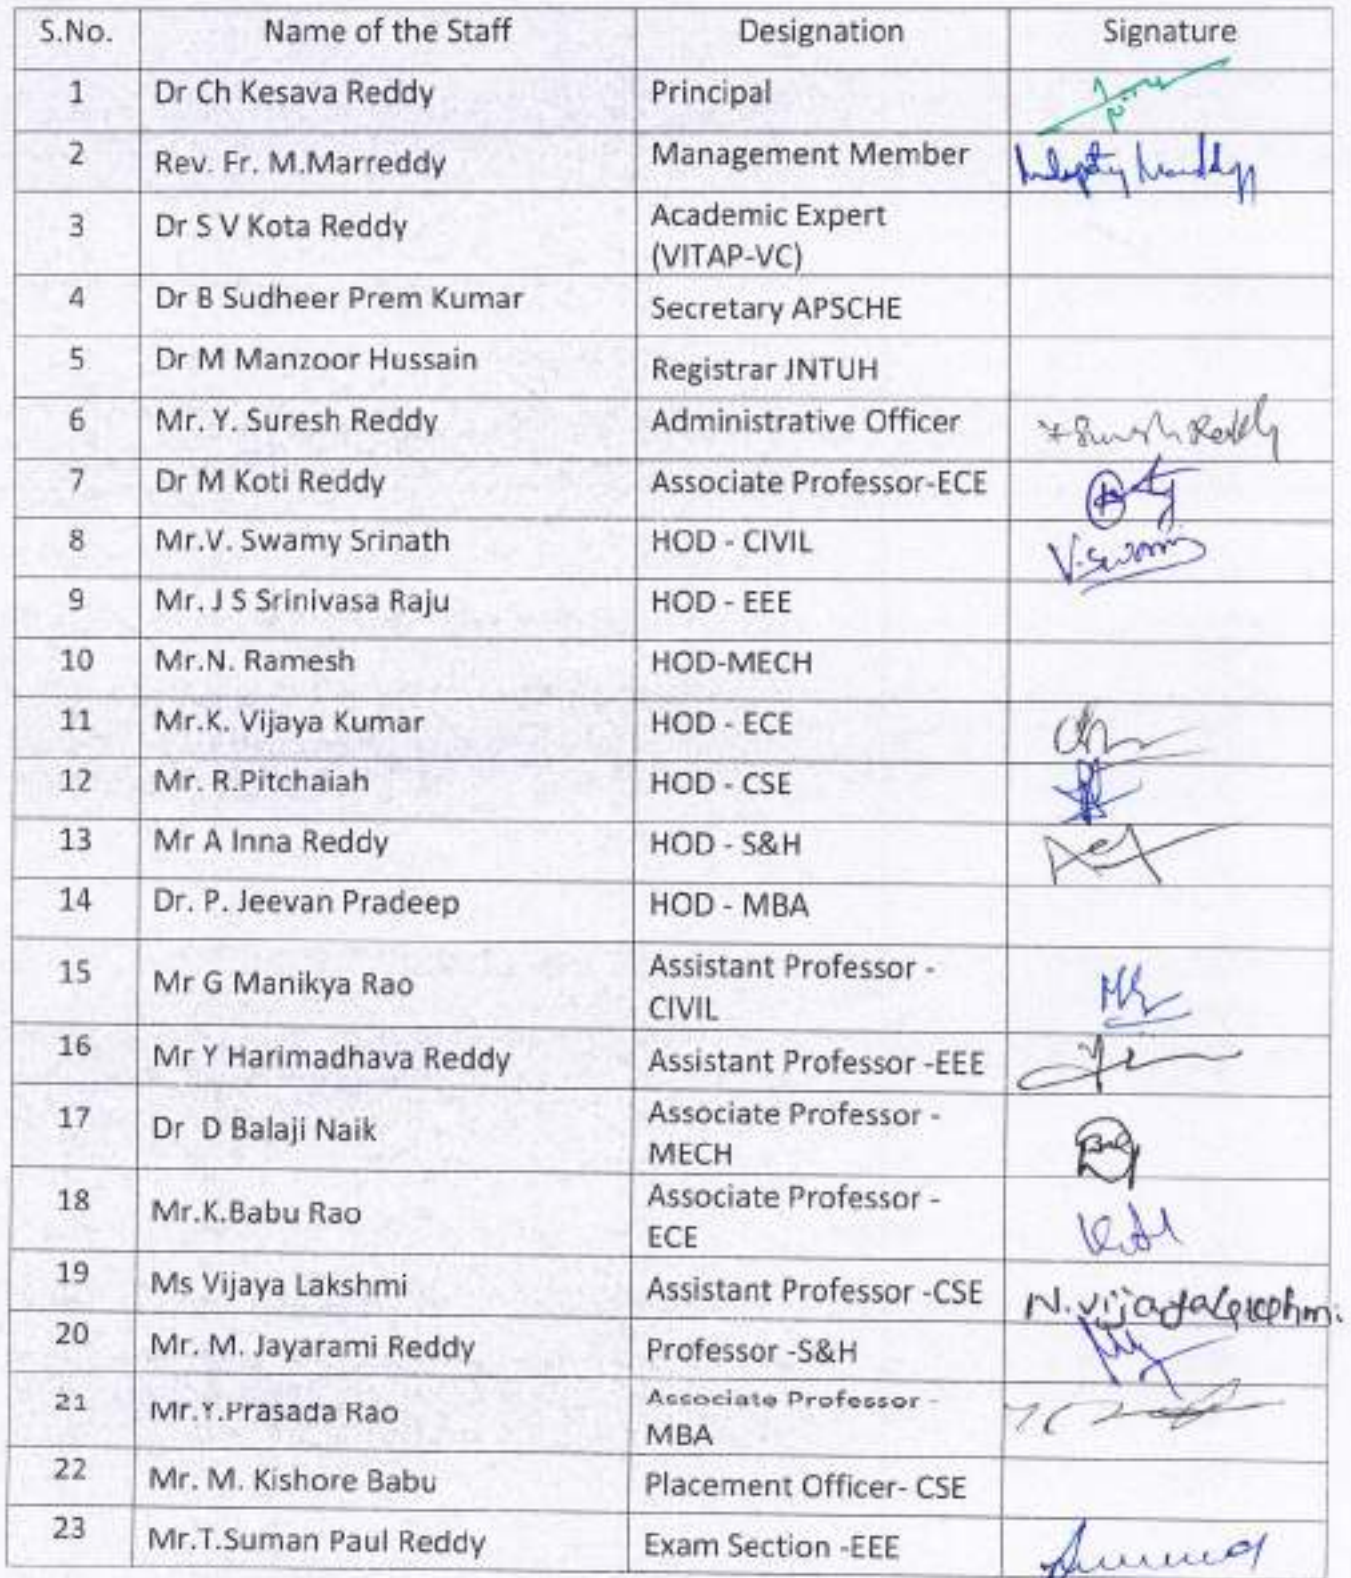 S.No. Name of the Staff Designation Signature
1 Dr Ch Kesava Reddy Principal
2 Rev. Fr. M.Marreddy Management Member
3 Dr S V Kota Reddy Academic Expert
(VITAP-VC)
4 Dr B Sudheer Prem Kumar Secretary APSCHE
5 Dr M Manzoor Hussain Registrar JNTUH
6 Mr. Y. Suresh Reddy Administrative Officer Y Suresh Reddy
7 Dr M Koti Reddy Associate Professor-ECE
8 Mr.V. Swamy Srinath HOD - CIVIL V.Swamy
9 Mr. J S Srinivasa Raju HOD - EEE
10 Mr.N. Ramesh HOD-MECH
11 Mr.K. Vijaya Kumar HOD - ECE
12 Mr. R.Pitchaiah HOD - CSE
13 Mr A Inna Reddy HOD - S&H
14 Dr. P. Jeevan Pradeep HOD - MBA
15 Mr G Manikya Rao Assistant Professor -
CIVIL
16 Mr Y Harimadhava Reddy Assistant Professor -EEE
17 Dr D Balaji Naik Associate Professor -
MECH
18 Mr.K.Babu Rao Associate Professor -
ECE
19 Ms Vijaya Lakshmi Assistant Professor -CSE N.vijayalakshmi.
20 Mr. M. Jayarami Reddy Professor -S&H
21 Mr.Y.Prasada Rao Associate Professor -
MBA
22 Mr. M. Kishore Babu Placement Officer- CSE
23 Mr.T.Suman Paul Reddy Exam Section -EEE